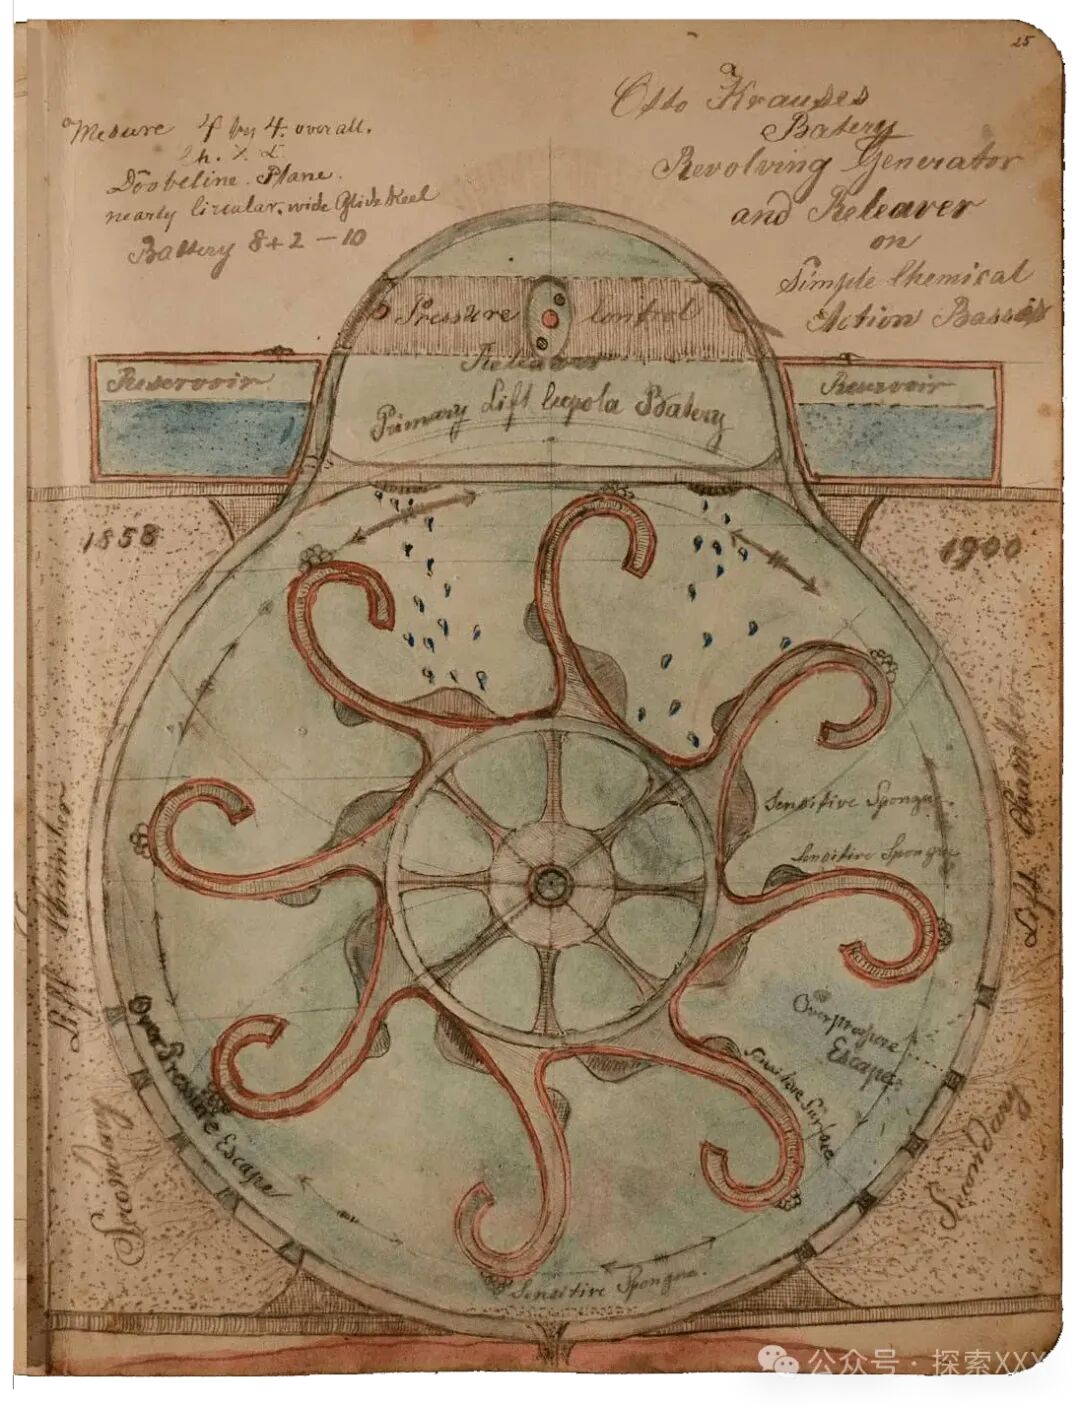 25
Mesure 4 by 4. overall.
Doobeline. Plane.
nearly Circular. wide Glide Keel
Battery 8+2 — 10
Otto Krauses
Batery
Revolving Generator
and Releaver
on
Simple Chemical
Action Bassis
Pressure Control
Releaver
Reservoir
Reservoir
Primary Lift Cupola Batery
1858
1900
Sensitive Spongue.
Sensitive Spongue
Lift Chamber
Lift Chamber
Overpressure
Escape
Over Pressure Escape
Sensitive Surface
Secondary
Secondary
Sensitive Spongue.
公众号 · 探索XXX